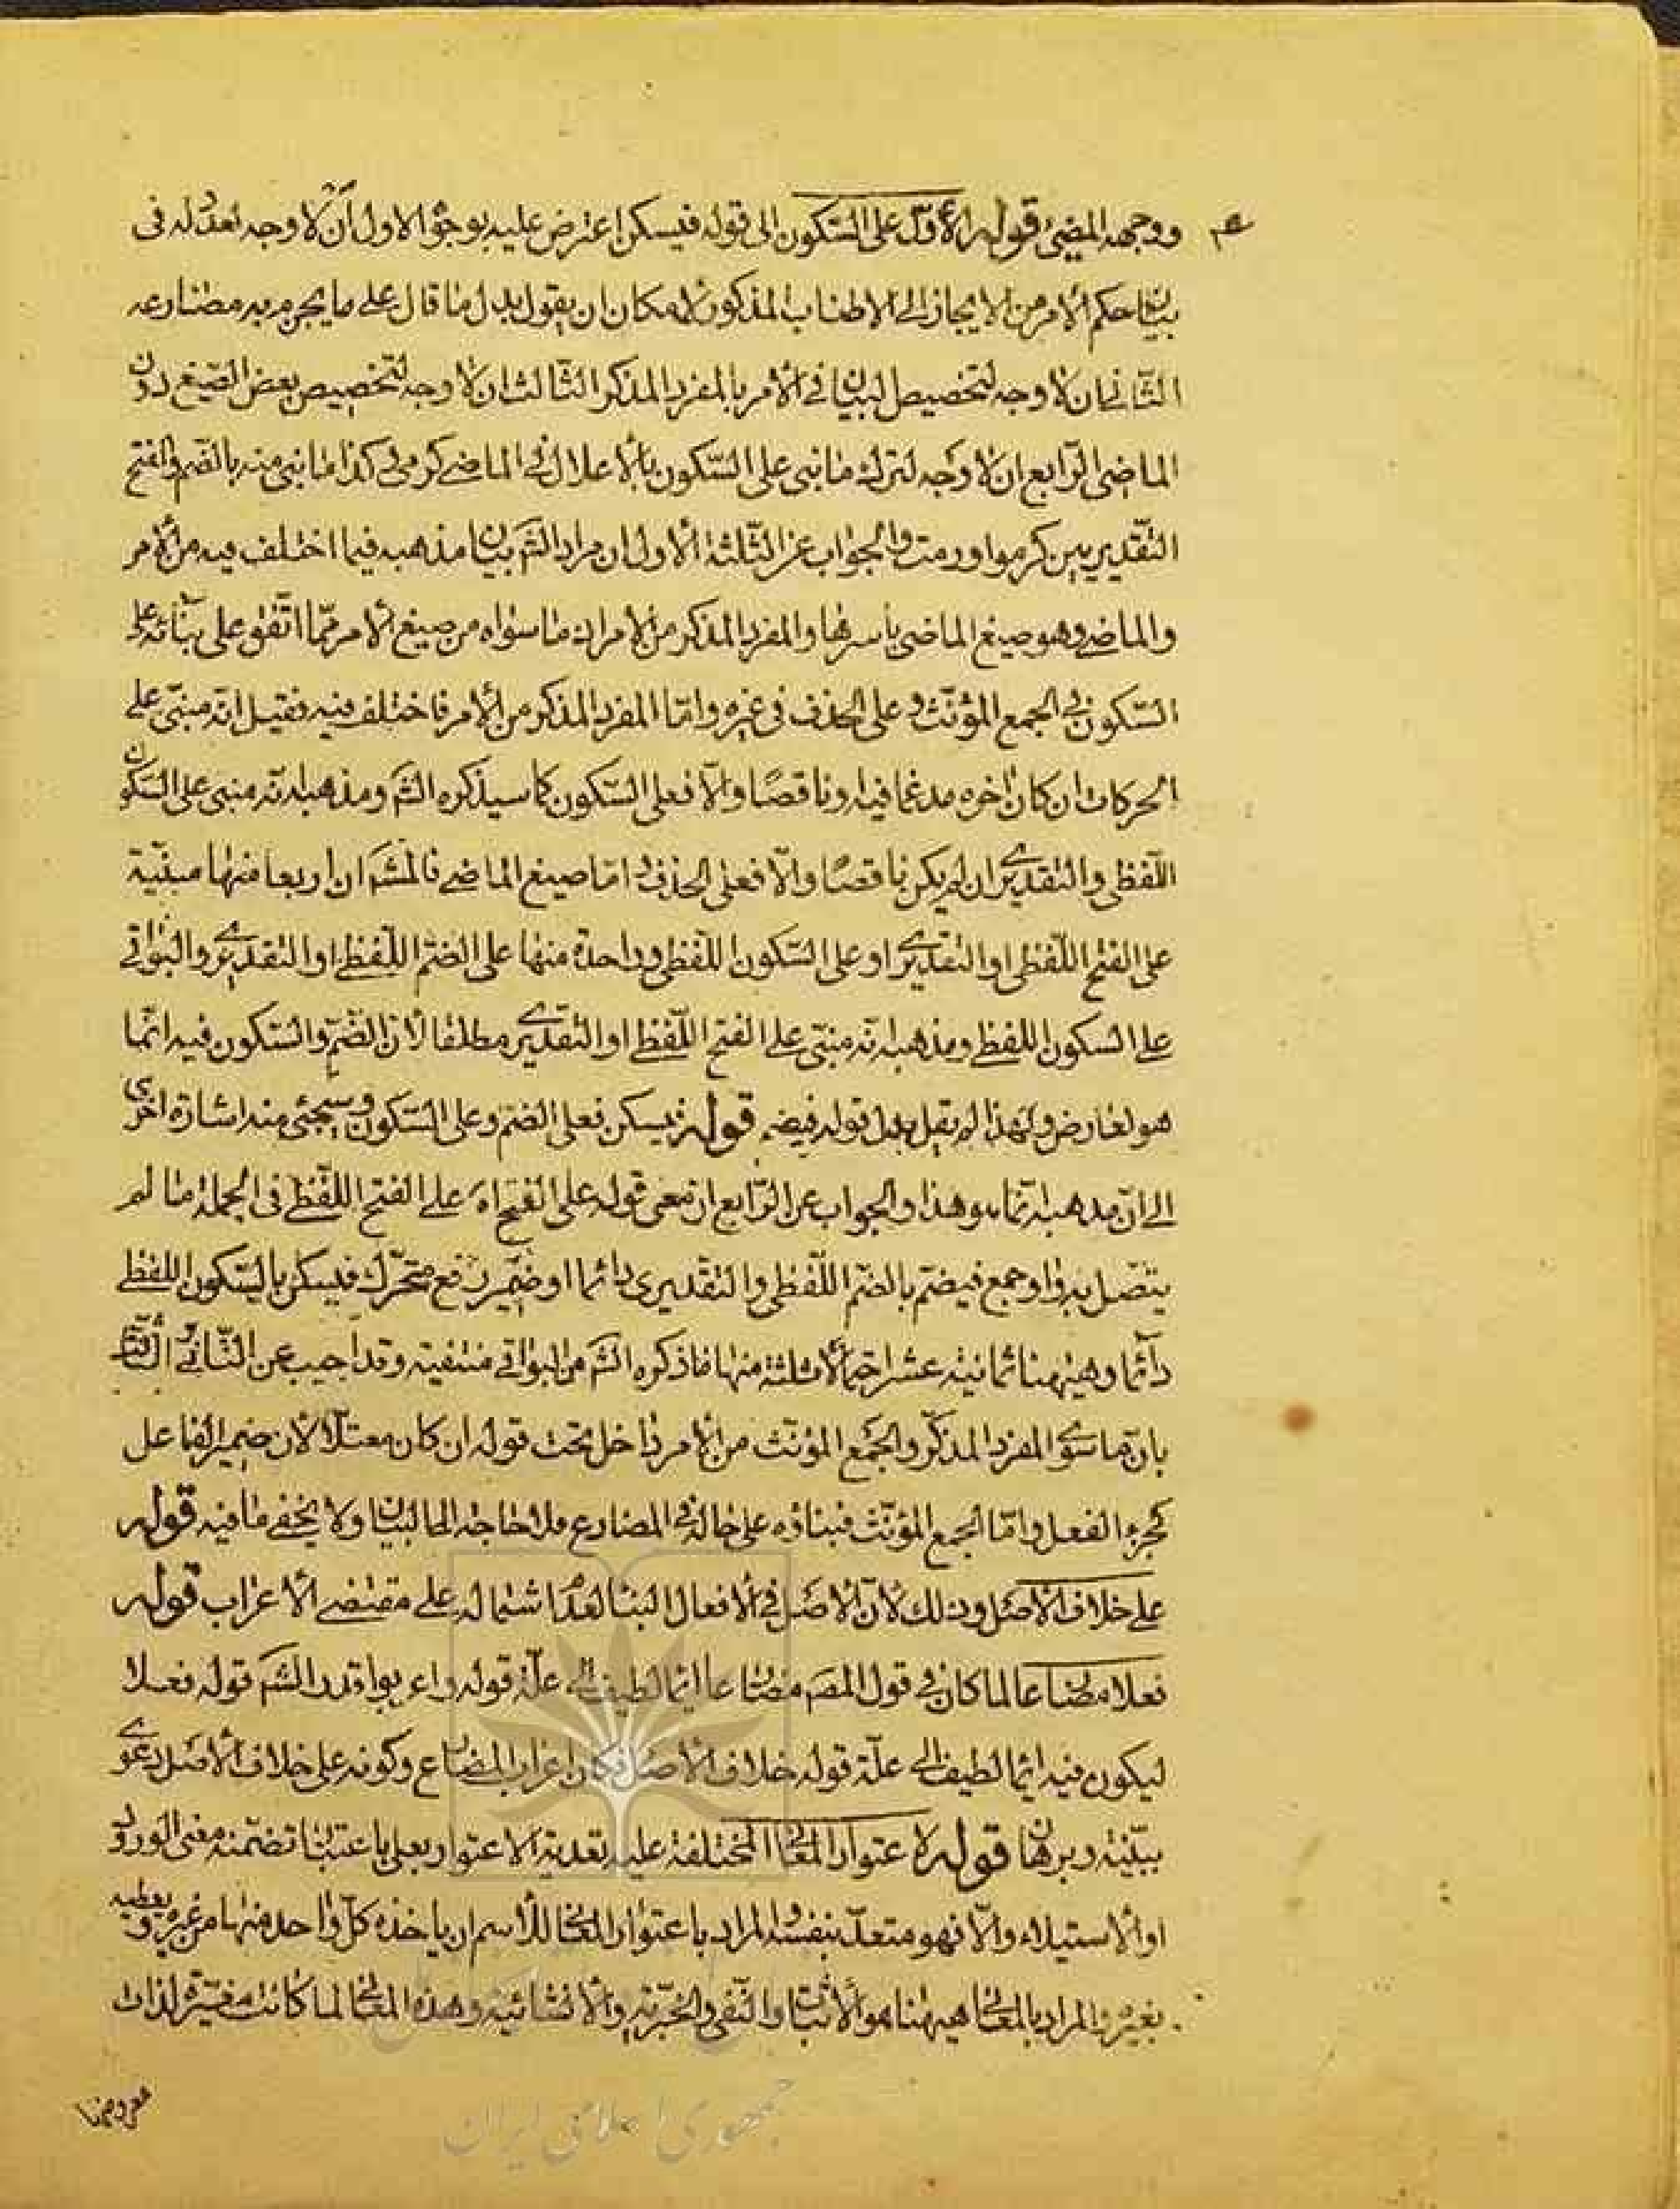 ووجهه المضئ قوله الأول على السكون الى قوله فيسكن اعترض عليه بوجوه الاول ان لا وجه لعدوله فى
بيان حكم الامر من الايجاز الى الاطناب المذكور لامكان ان يقول بدل ما قال على ما يجزم به مضارعه
الثانى ان لا وجه لتخصيص البيان فى الأمر بالمفرد المذكر الثالث ان لا وجه لتخصيص بعض الصيغ دون
الماضى الرابع ان لا وجه لترك ما بنى على السكون بالاعلال فى الماضى كرمى وكذا ما بنى منه بالضم والفتح
التقديريين كرموا ورمت والجواب عن الثلثة الأول ان مراد الشم بيان مذهبه فيما اختلف فيه من الأمر
والماضى وهو صيغ الماضى بأسرها والمفرد المذكر من الامر اذ ما سواه من صيغ الأمر مما اتفقوا على بنائه على
السكون فى الجمع المؤنث وعلى الحذف فى غيره واما المفرد المذكر من الأمر فاختلف فيه فقيل انه مبنى على
الحركات ان كان اخره مدغما فيه او ناقصا والا فعلى السكون كما سيذكره الشم ومذهبه انه مبنى على السكون
اللفظى والتقديرى ان لم يكن ناقصا والا فعلى الحذف واما صيغ الماضى فالمشم ان اربعا منها مبنية
على الفتح اللفظى او التقديرى او على السكون اللفظى وواحدة منها على الضم اللفظى او التقديرى والبواقى
على السكون اللفظى ومذهبه انه مبنى على الفتح اللفظى او التقديرى مطلقا لان الضم والسكون فيه انما
هو لعارض ولهذا لم يقل بدل قوله فيضم قوله فيسكن فعلى الضم وعلى السكون وسيجئ منه اشارة اخرى
الى ان مذهبه انما هو هذا والجواب عن الرابع ان معنى قوله على الفتح اه على الفتح اللفظى فى الجملة ما لم
يتصل به واو جمع فيضم بالضم اللفظى والتقديرى دائما او ضمير رفع متحرك فيسكن بالسكون اللفظى
دائما وههنا ثمانية عشر احتمالا ثلثة منها ما ذكره الشم من البواقى منتفية وقد اجيب عن الثانى
بان ما سوى المفرد المذكر والجمع المؤنث من الأمر داخل تحت قوله ان كان معتلا لان ضمير الفاعل
كجزء الفعل واما الجمع المؤنث فبناؤه على حاله فى المضارع فلا حاجة الى البيان ولا يخفى ما فيه قوله
على خلاف الأصل وذلك لأن الأصل فى الأفعال البناء لعدم اشتماله على مقتضى الاعراب قوله
فعلا مضارعا لما كان فى قول المصم مضارعا ايماء لطيف الى علة قوله واعربوا قدر الشم قوله فعلا
ليكون فيه ايماء لطيف الى علة قوله خلاف الأصل فكان اعراب المضارع وكونه على خلاف الأصل دعوى
ببينة وبرهان قوله لاعتوار المعانى المختلفة عليه تعدية الاعتوار بعلى باعتبار تضمنه معنى الورود
او الاستيلاء والا فهو متعد بنفسه والمراد باعتوار المعانى للأسم ان ياخذه كل واحد منها من غيره ويعطيه
بغيره والمراد بالمعانى ههنا هو الاثبات والنفى والخبرية والانشائية وهذه المعانى لما كانت مغيرة لذات